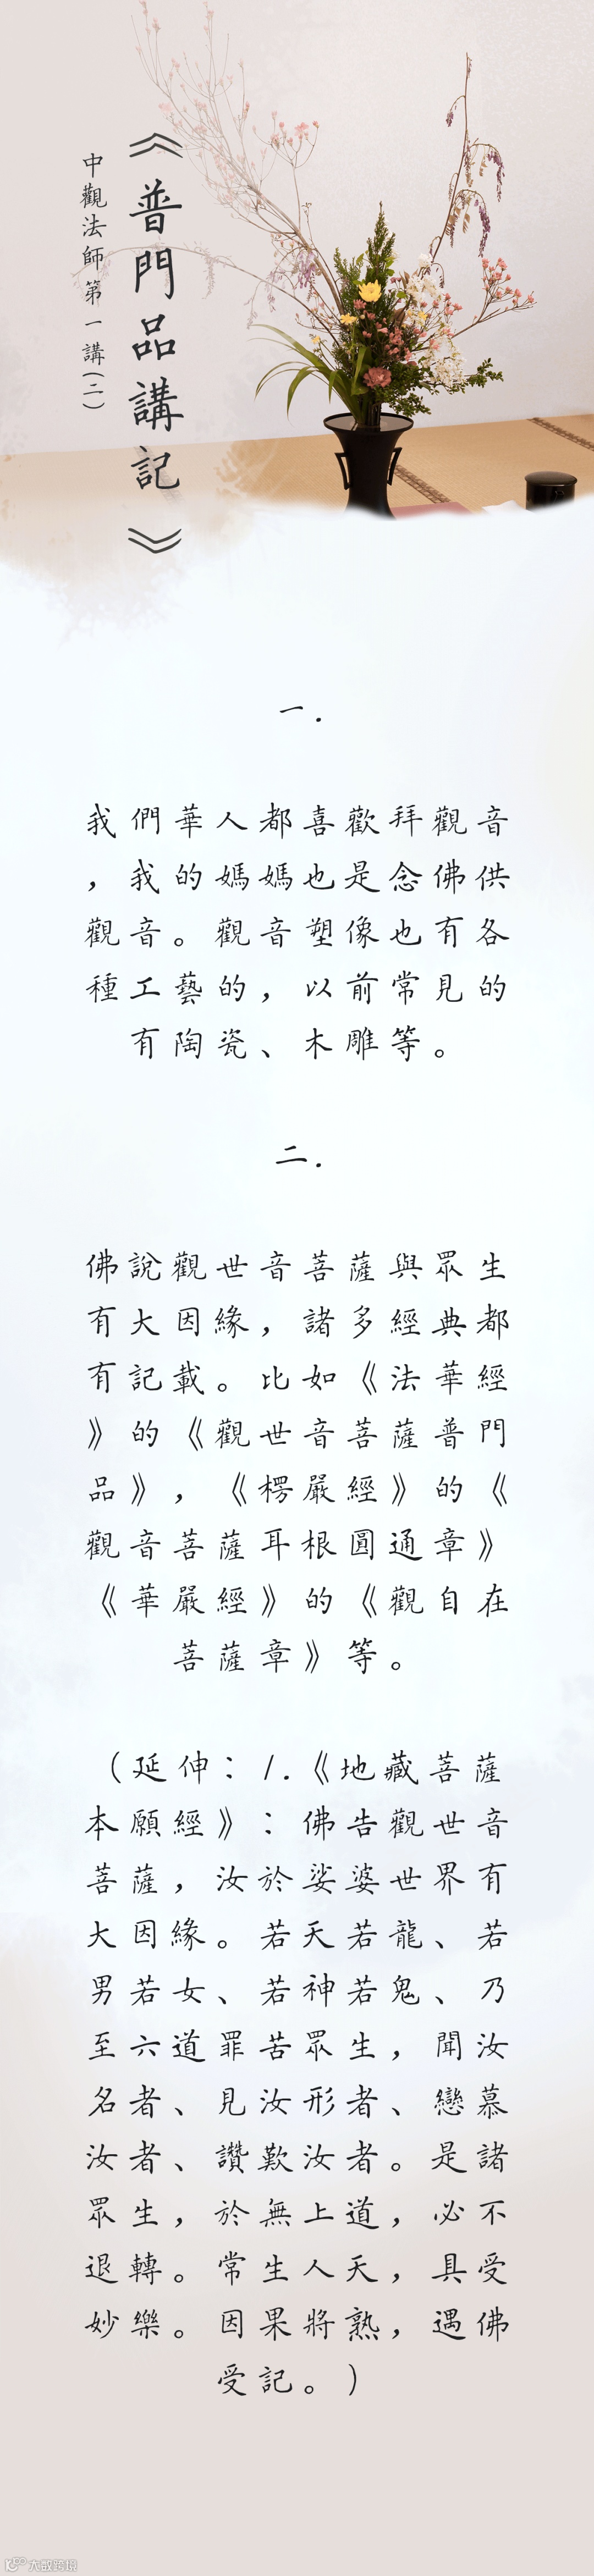 《普門品講記》
中觀法師第一講(二)
一.
我們華人都喜歡拜觀音
，我的媽媽也是念佛供
觀音。觀音塑像也有各
種工藝的，以前常見的
有陶瓷、木雕等。
二.
佛說觀世音菩薩與眾生
有大因緣，諸多經典都
有記載。比如《法華經
》的《觀世音菩薩普門
品》，《楞嚴經》的《
觀音菩薩耳根圓通章》
《華嚴經》的《觀自在
菩薩章》等。
（延伸：1.《地藏菩薩
本願經》：佛告觀世音
菩薩，汝於娑婆世界有
大因緣。若天若龍、若
男若女、若神若鬼、乃
至六道罪苦眾生，聞汝
名者、見汝形者、戀慕
汝者、讚歎汝者。是諸
眾生，於無上道，必不
退轉。常生人天，具受
妙樂。因果將熟，遇佛
受記。）
大数跨境